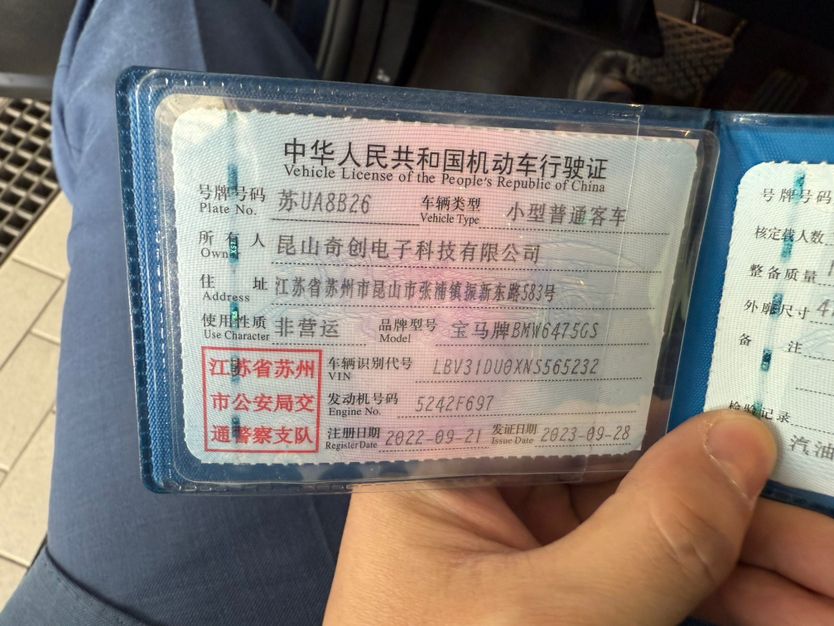 中华人民共和国机动车行驶证
Vehicle License of the People's Republic of China
号牌号码 苏UA8B26 车辆类型 小型普通客车
Plate No. Vehicle Type
所有人 昆山奇创电子科技有限公司
Owner
住址 江苏省苏州市昆山市张浦镇振新东路583号
Address
使用性质 非营运 品牌型号 宝马牌BMW6475GS
Use Character Model
江苏省苏州
市公安局交
通警察支队
车辆识别代号 LBV31DU0XNS565232
VIN
发动机号码 5242F697
Engine No.
注册日期 2022-09-21 发证日期 2023-09-28
Register Date Issue Date
号牌号码
核定载人数
整备质量
外廓尺寸
备注
检验记录
汽油